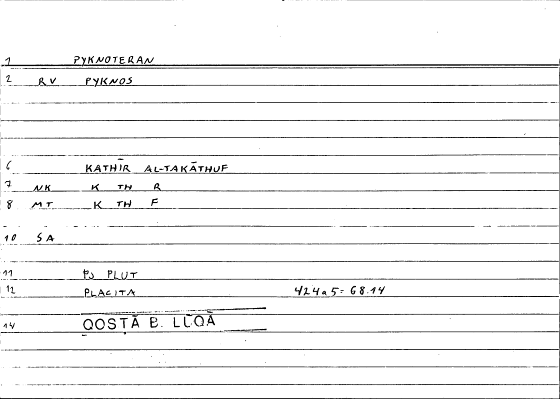 1 PYKNOTERAN
2 RV PYKNOS
6 KATHĪR AL-TAKĀTHUF
7 NK K TH R
8 MT K TH F
10 SA
11 PS PLUT
12 PLACITA 424a5 = 68.14
14 QOSṬĀ B. LŪQĀ